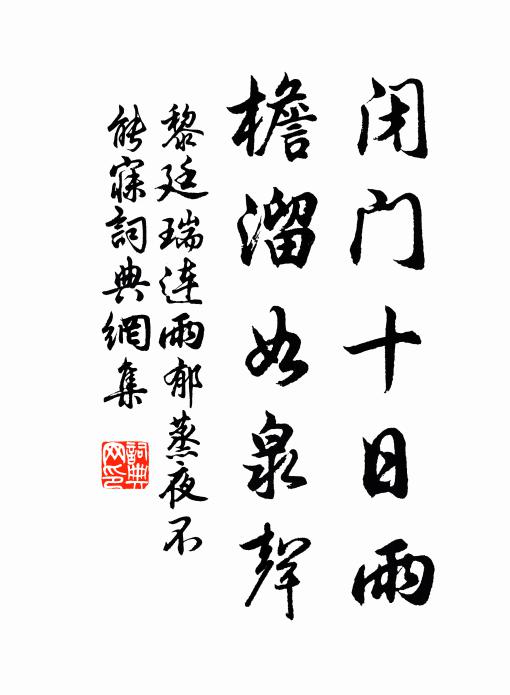 闭门十日雨
檐溜如泉声
黎廷瑞连雨郁蒸夜不
能寐词典網集
詞典网印